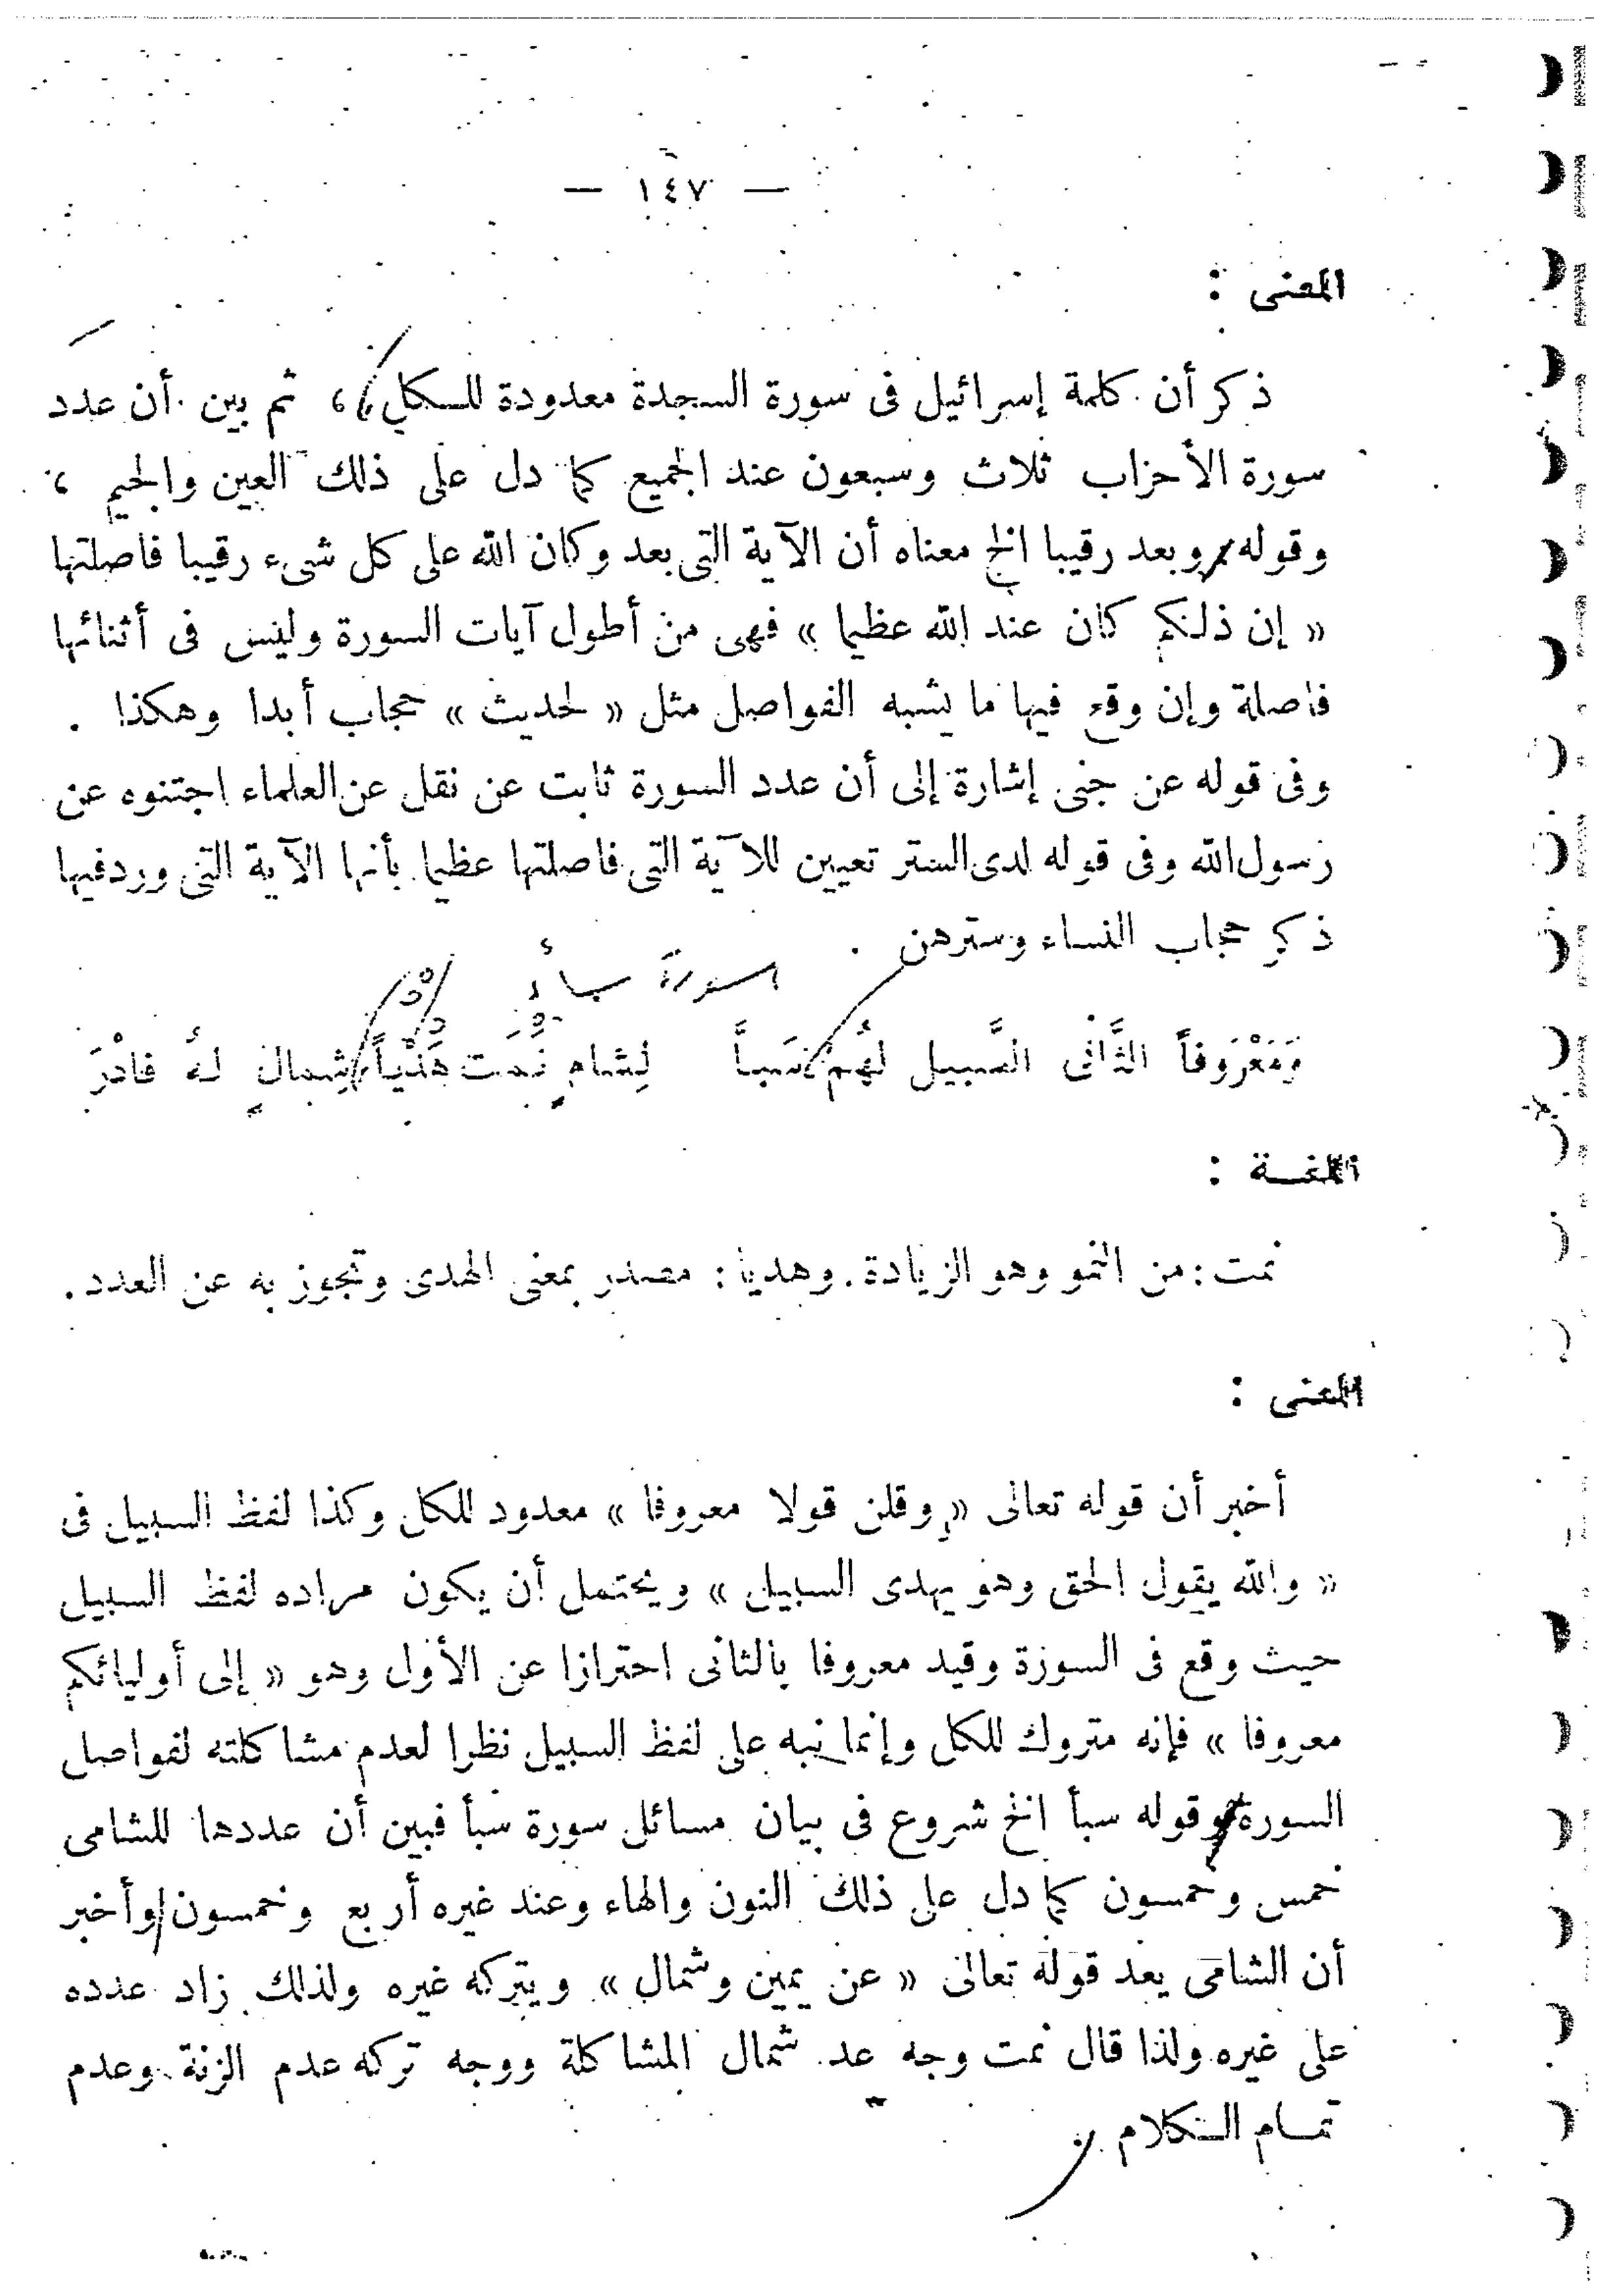 — ١٤٧ —
المعنى :
ذكر أن كلمة إسرائيل فى سورة السجدة معدودة للكل ، ثم بين أن عدد
سورة الأحزاب ثلاث وسبعون عند الجميع كما دل على ذلك العين والجيم ،
وقوله وبعد رقيبا الخ معناه أن الآية التى بعد وكان الله على كل شىء رقيبا فاصلتها
« إن ذلكم كان عند الله عظيما » فهى من أطول آيات السورة وليس فى أثنائها
فاصلة وإن وقع فيها ما يشبه الفواصل مثل « لحديث » حجاب أبدا وهكذا .
وفى قوله عن جنى إشارة إلى أن عدد السورة ثابت عن نقل عن العلماء اجتنوه عن
رسول الله وفى قوله لدى الستر تعيين للآية التى فاصلتها عظيما بأنها الآية التى ورد فيها
ذكر حجاب النساء وسترهن .
سورة سبأ
وَمَعْرُوفاً الثَّانى السَّبيل لهُم سَبأً لِشام نَمَت هَدْياً شِمال لهُ فادْرَ
اللغـة :
نمت : من النمو وهو الزيادة . وهديا : مصدر بمعنى الهدى وتجوز به عن العدد .
المعنى :
أخبر أن قوله تعالى « وقلن قولا معروفا » معدود للكل وكذا لفظ السبيل فى
« والله يقول الحق وهو يهدى السبيل » ويحتمل أن يكون مراده لفظ السبيل
حيث وقع فى السورة وقيد معروفا بالثانى احترازا عن الأول وهو « إلى أوليائكم
معروفا » فإنه متروك للكل وإنما نبه على لفظ السبيل نظرا لعدم مشاكلته لفواصل
السورة وقوله سبأ الخ شروع فى بيان مسائل سورة سبأ فبين أن عددها للشامى
خمس وخمسون كما دل على ذلك النون والهاء وعند غيره أربع وخمسون وأخبر
أن الشامى يعد قوله تعالى « عن يمين وشمال » ويتركه غيره ولذلك زاد عدده
على غيره ولذا قال نمت وجه عد شمال المشاكلة ووجه تركه عدم الزنة وعدم
تمـام الـكلام .